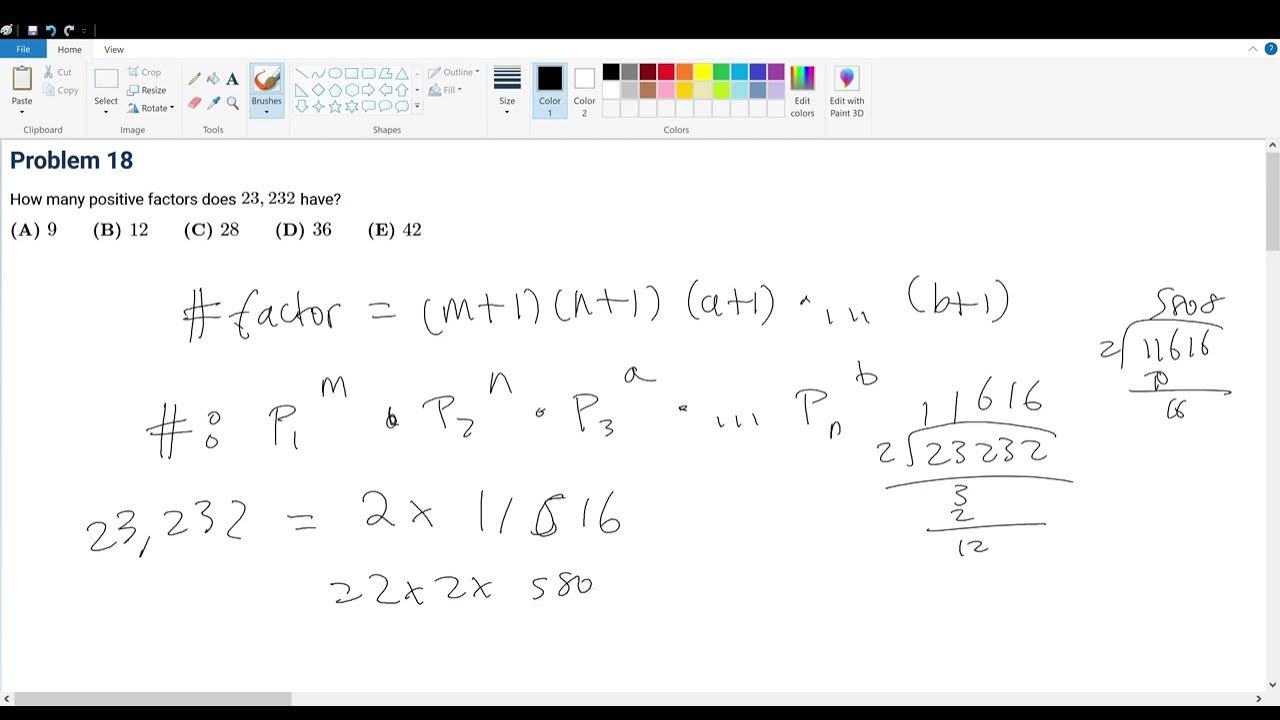 File Home View
Paste Cut Copy Select Crop Resize Rotate A Brushes Outline Fill Size Color 1 Color 2 Edit colors Edit with Paint 3D
Clipboard Image Tools Shapes Colors
Problem 18
How many positive factors does 23, 232 have?
(A) 9 (B) 12 (C) 28 (D) 36 (E) 42
# factor = (m+1)(n+1) (a+1) · ... (b+1)
5808
2 11616
10
16
#: P₁^m · P₂^n · P₃^a · ... Pₙ^b
11616
2 23232
3
2
12
23,232 = 2 x 11616
= 2 x 2 x 580